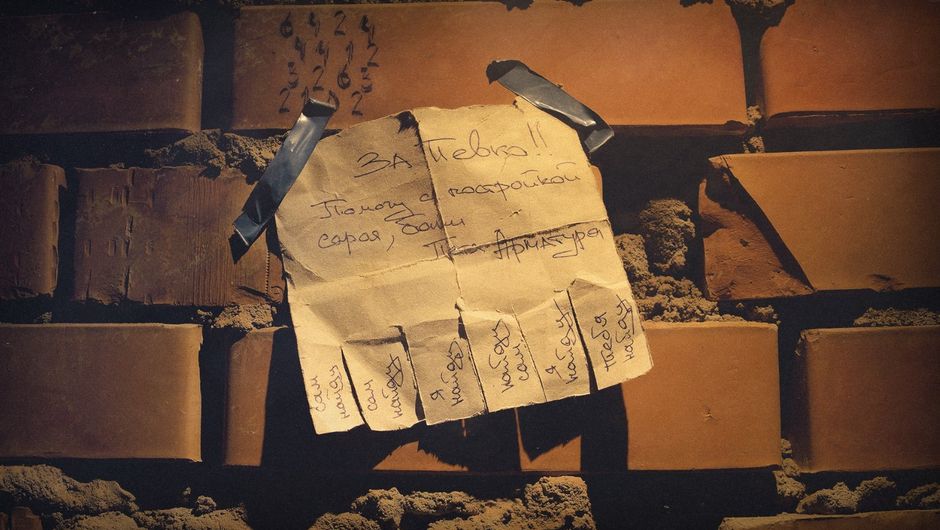 ЗА Певко!!
Помогу с постройкой
сарая, бани
Арматура
сам
найду
сам
найду
я
найду
найду
сам
я
найду
тебя
найду